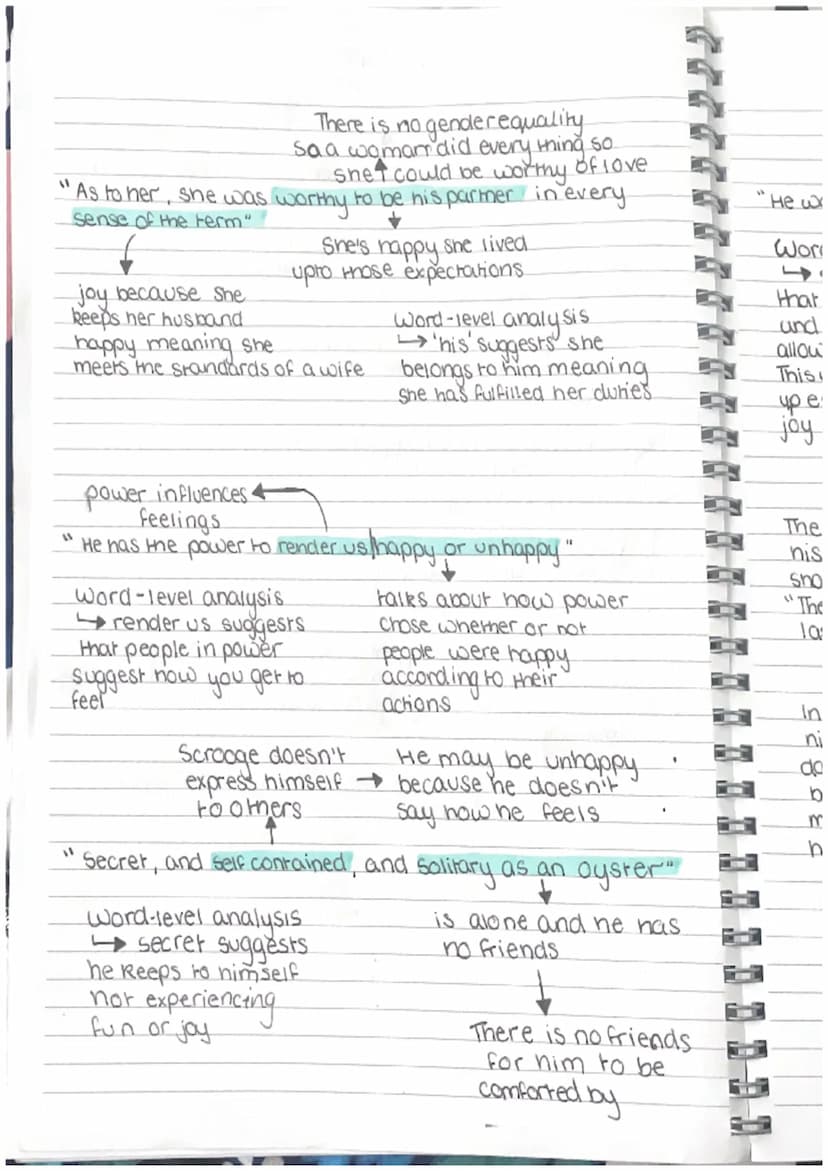 There is no gender equality
so a woman did every thing so
she could be worthy of love
"As to her, she was worthy to be his partner in every
sense of the term"
She's happy she lived
upto those expectations
joy because she
keeps her husband
happy meaning she
meets the standards of a wife
Word-level analysis
↳ 'his' suggests she
belongs to him meaning
she has fulfilled her duties
power influences
feelings
"He has the power to render us happy or unhappy"
Word-level analysis
↳ render us suggests
that people in power
suggest how you get to
feel
talks about how power
chose whether or not
people were happy
according to their
actions
Scrooge doesn't
express himself →
to others
He may be unhappy
because he doesn't
say how he feels
"Secret, and self contained, and solitary as an oyster"
Word-level analysis
↳ secret suggests
he keeps to himself
not experiencing
fun or joy
is alone and he has
no friends
There is no friends
for him to be
comforted by
"He
↳
that
und
allow
This
up e
joy
The
his
sno
"The
la
In
ni
do
b
m
h